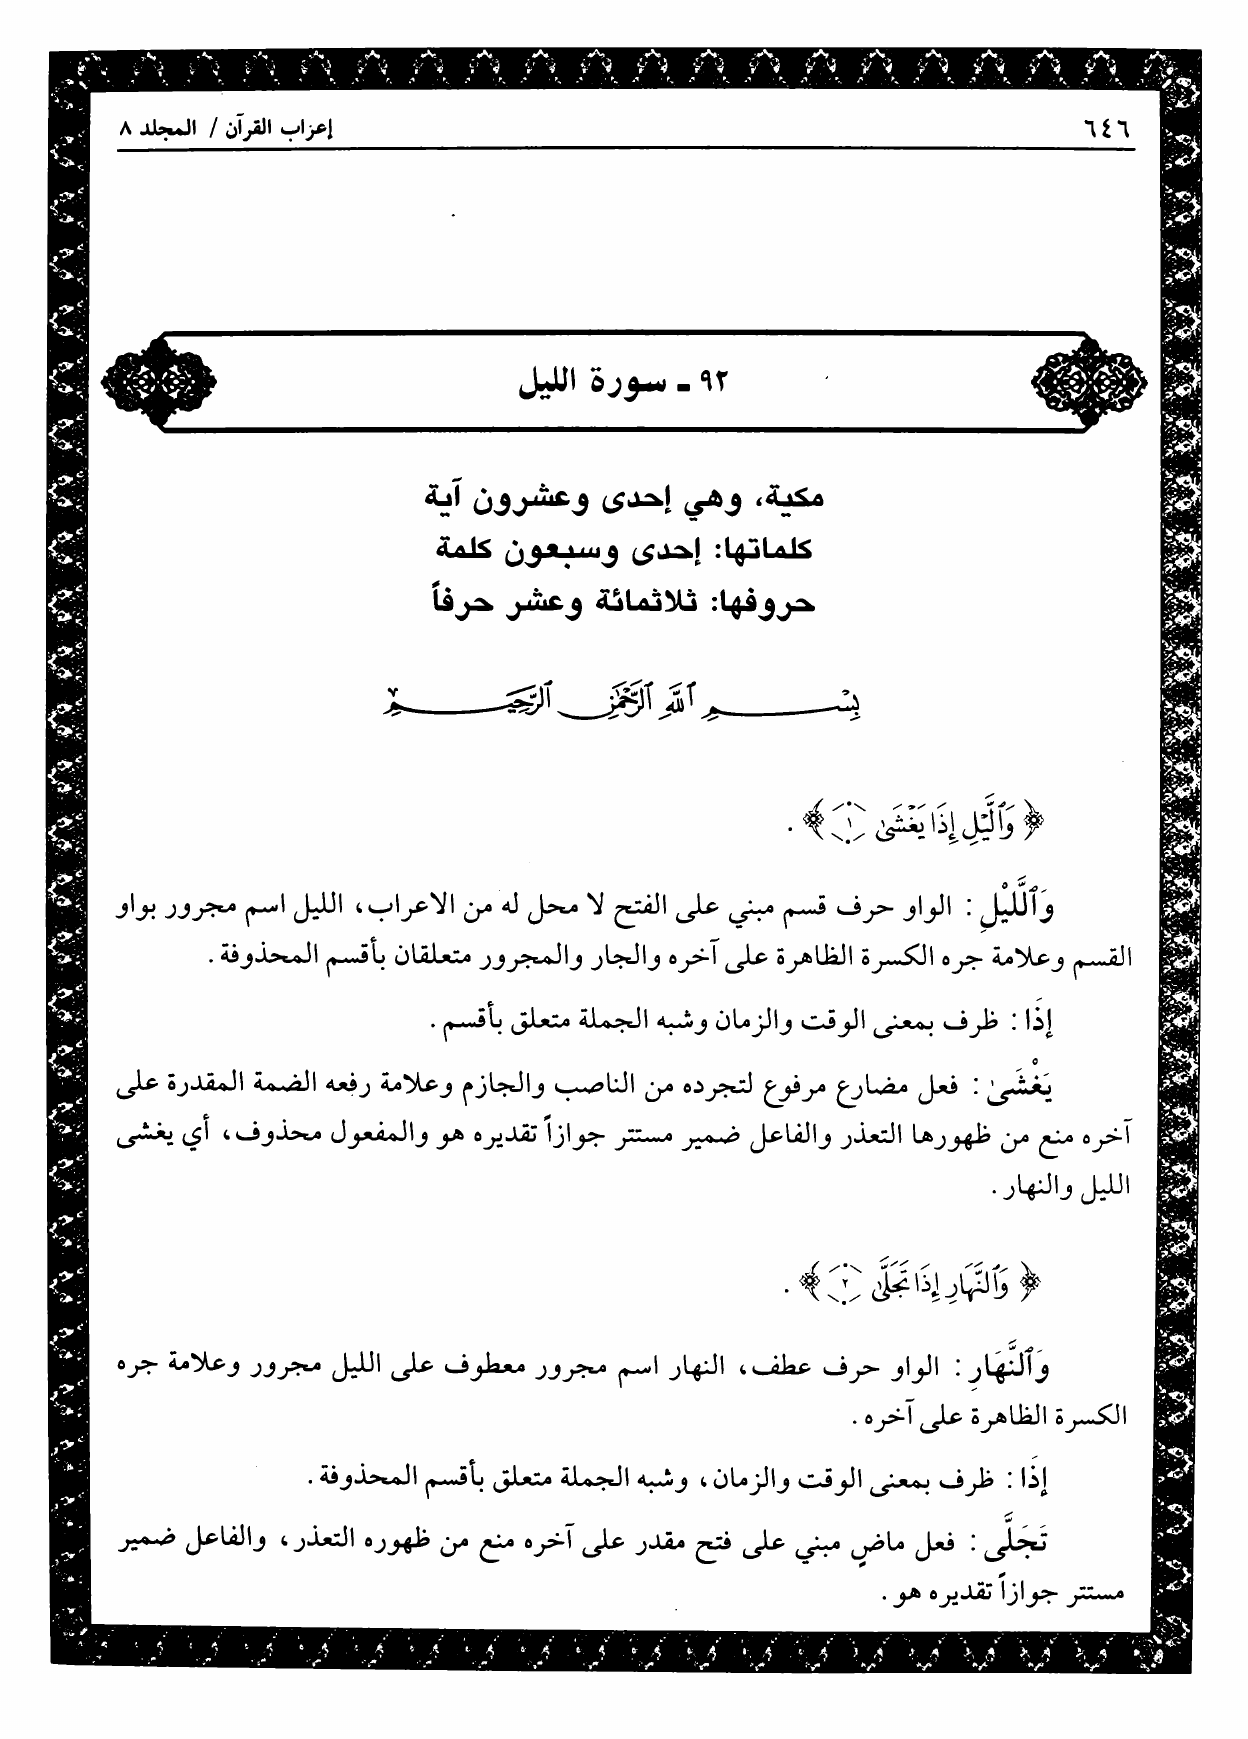 ٦٤٦
إعراب القرآن / المجلد ٨
٩٢ - سورة الليل
مكية، وهي إحدى وعشرون آية
كلماتها: إحدى وسبعون كلمة
حروفها: ثلاثمائة وعشر حرفاً
بِسْمِ ٱللَّهِ ٱلرَّحْمَٰنِ ٱلرَّحِيمِ
﴿ وَٱلَّيْلِ إِذَا يَغْشَىٰ ١ ﴾ .
وَٱللَّيْلِ : الواو حرف قسم مبني على الفتح لا محل له من الاعراب، الليل اسم مجرور بواو
القسم وعلامة جره الكسرة الظاهرة على آخره والجار والمجرور متعلقان بأقسم المحذوفة .
إِذَا : ظرف بمعنى الوقت والزمان وشبه الجملة متعلق بأقسم .
يَغْشَىٰ : فعل مضارع مرفوع لتجرده من الناصب والجازم وعلامة رفعه الضمة المقدرة على
آخره منع من ظهورها التعذر والفاعل ضمير مستتر جوازاً تقديره هو والمفعول محذوف، أي يغشى
الليل والنهار .
﴿ وَٱلنَّهَارِ إِذَا تَجَلَّىٰ ٢ ﴾ .
وَٱلنَّهَارِ : الواو حرف عطف، النهار اسم مجرور معطوف على الليل مجرور وعلامة جره
الكسرة الظاهرة على آخره .
إِذَا : ظرف بمعنى الوقت والزمان، وشبه الجملة متعلق بأقسم المحذوفة .
تَجَلَّى : فعل ماضٍ مبني على فتح مقدر على آخره منع من ظهوره التعذر، والفاعل ضمير
مستتر جوازاً تقديره هو .